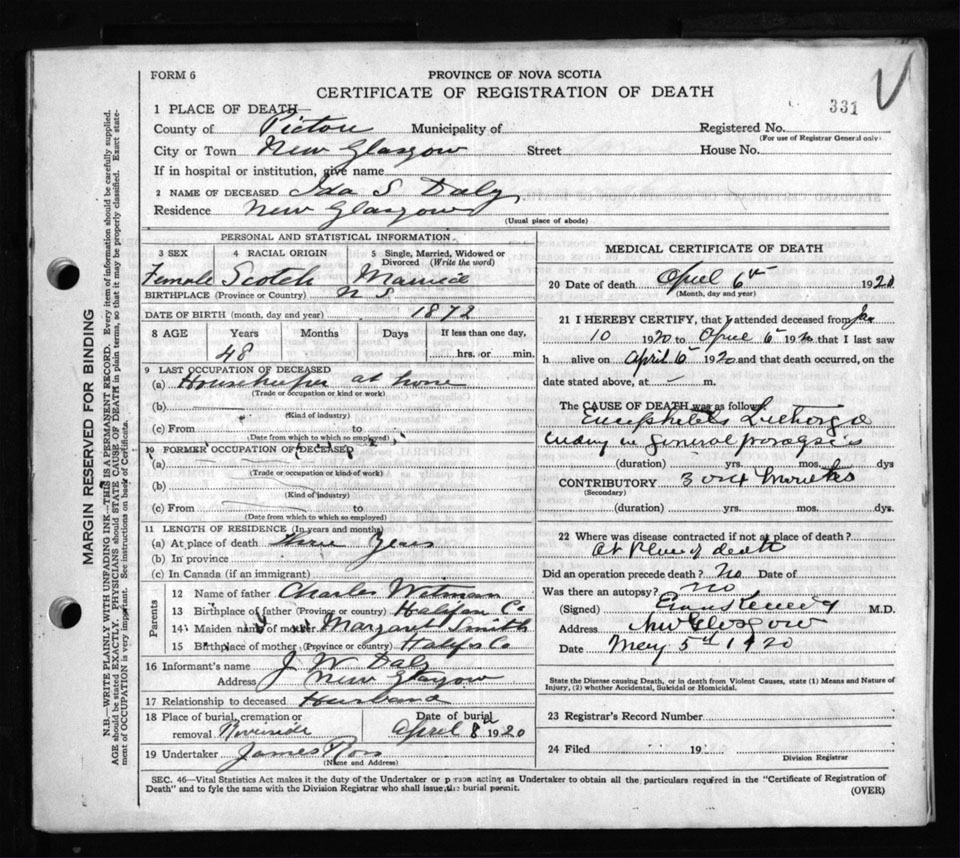 FORM 6
PROVINCE OF NOVA SCOTIA
CERTIFICATE OF REGISTRATION OF DEATH
331
1 PLACE OF DEATH—
County of Pictou Municipality of Registered No.
(For use of Registrar General only)
City or Town New Glasgow Street House No.
If in hospital or institution, give name
2 NAME OF DECEASED Ida S Daly
Residence New Glasgow
(Usual place of abode)
MARGIN RESERVED FOR BINDING
N.B.—WRITE PLAINLY WITH UNFADING INK—THIS IS A PERMANENT RECORD. Every item of information should be carefully supplied.
AGE should be stated EXACTLY. PHYSICIANS should STATE CAUSE OF DEATH in plain terms, so that it may be properly classified. Exact state-
ment of OCCUPATION is very important. See instructions on back of Certificate.
PERSONAL AND STATISTICAL INFORMATION
3 SEX 4 RACIAL ORIGIN 5 Single, Married, Widowed or
Divorced (Write the word)
Female Scotch Married
BIRTHPLACE (Province or Country) N S
DATE OF BIRTH (month, day and year) 1872
8 AGE Years Months Days If less than one day,
48 hrs. or min.
9 LAST OCCUPATION OF DECEASED
(a) Housekeeper at home
(Trade or occupation or kind or work)
(b)
(Kind of industry)
(c) From to
(Date from which to which so employed)
10 FORMER OCCUPATION OF DECEASED
(a)
(Trade or occupation or kind of work)
(b)
(Kind of industry)
(c) From to
(Date from which to which so employed)
11 LENGTH OF RESIDENCE (In years and months)
(a) At place of death three Years
(b) In province
(c) In Canada (if an immigrant)
Parents
12 Name of father Charles Witman
13 Birthplace of father (Province or country) Halifax Co
14 Maiden name of mother Margaret Smith
15 Birthplace of mother (Province or country) Halifx Co
16 Informant's name J W Daly
Address New Glasgow
17 Relationship to deceased Husband
18 Place of burial, cremation or Date of burial
removal Riverside April 8th 1920
19 Undertaker James Ross
(Name and Address)
MEDICAL CERTIFICATE OF DEATH
20 Date of death April 6th 1920
(Month, day and year)
21 I HEREBY CERTIFY, that I attended deceased from Jan
10 1920 to April 6 1920 that I last saw
h alive on April 6 1920 and that death occurred, on the
date stated above, at — m.
The CAUSE OF DEATH was as follows:
Lethargica
ending in general
(duration) yrs. mos. dys
CONTRIBUTORY 3 or 4
(Secondary)
(duration) yrs. mos. dys.
22 Where was disease contracted if not at place of death?
At Place of death
Did an operation precede death? No Date of
Was there an autopsy? No
(Signed) M.D.
Address New Glasgow
Date May 5th 1920
State the Disease causing Death, or in death from Violent Causes, state (1) Means and Nature of
Injury, (2) whether Accidental, Suicidal or Homicidal.
23 Registrar's Record Number
24 Filed 19
Division Registrar
SEC. 46—Vital Statistics Act makes it the duty of the Undertaker or person acting as Undertaker to obtain all the particulars required in the "Certificate of Registration of
Death" and to fyle the same with the Division Registrar who shall issue the burial permit.
(OVER)